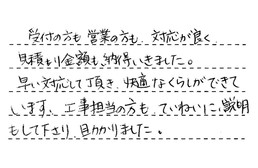 受付の方も営業の方も、対応が良く
見積もり金額も、納得いきました。
早い対応して頂き、快適なくらしができて
います。工事担当の方も、ていねいに、説明
もして下さり、助かりました。